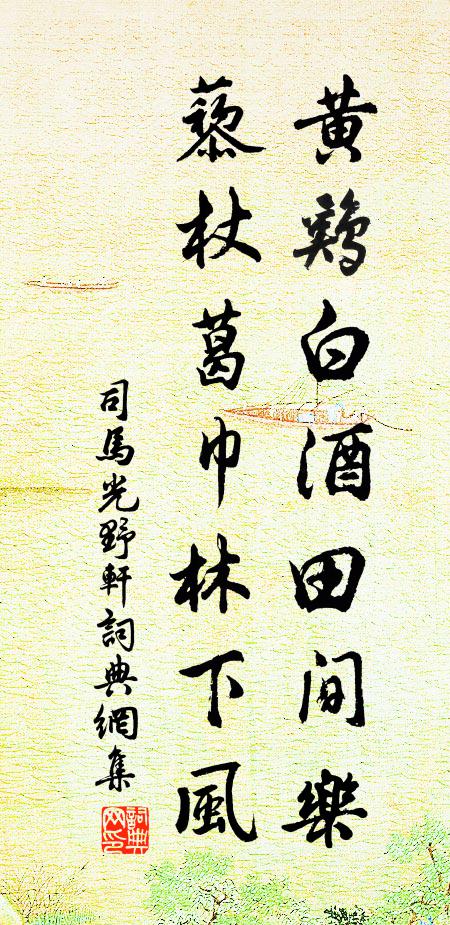 黄鷄白酒田間樂
藜杖葛巾林下風
司馬光野軒詞典網集
詞典网印